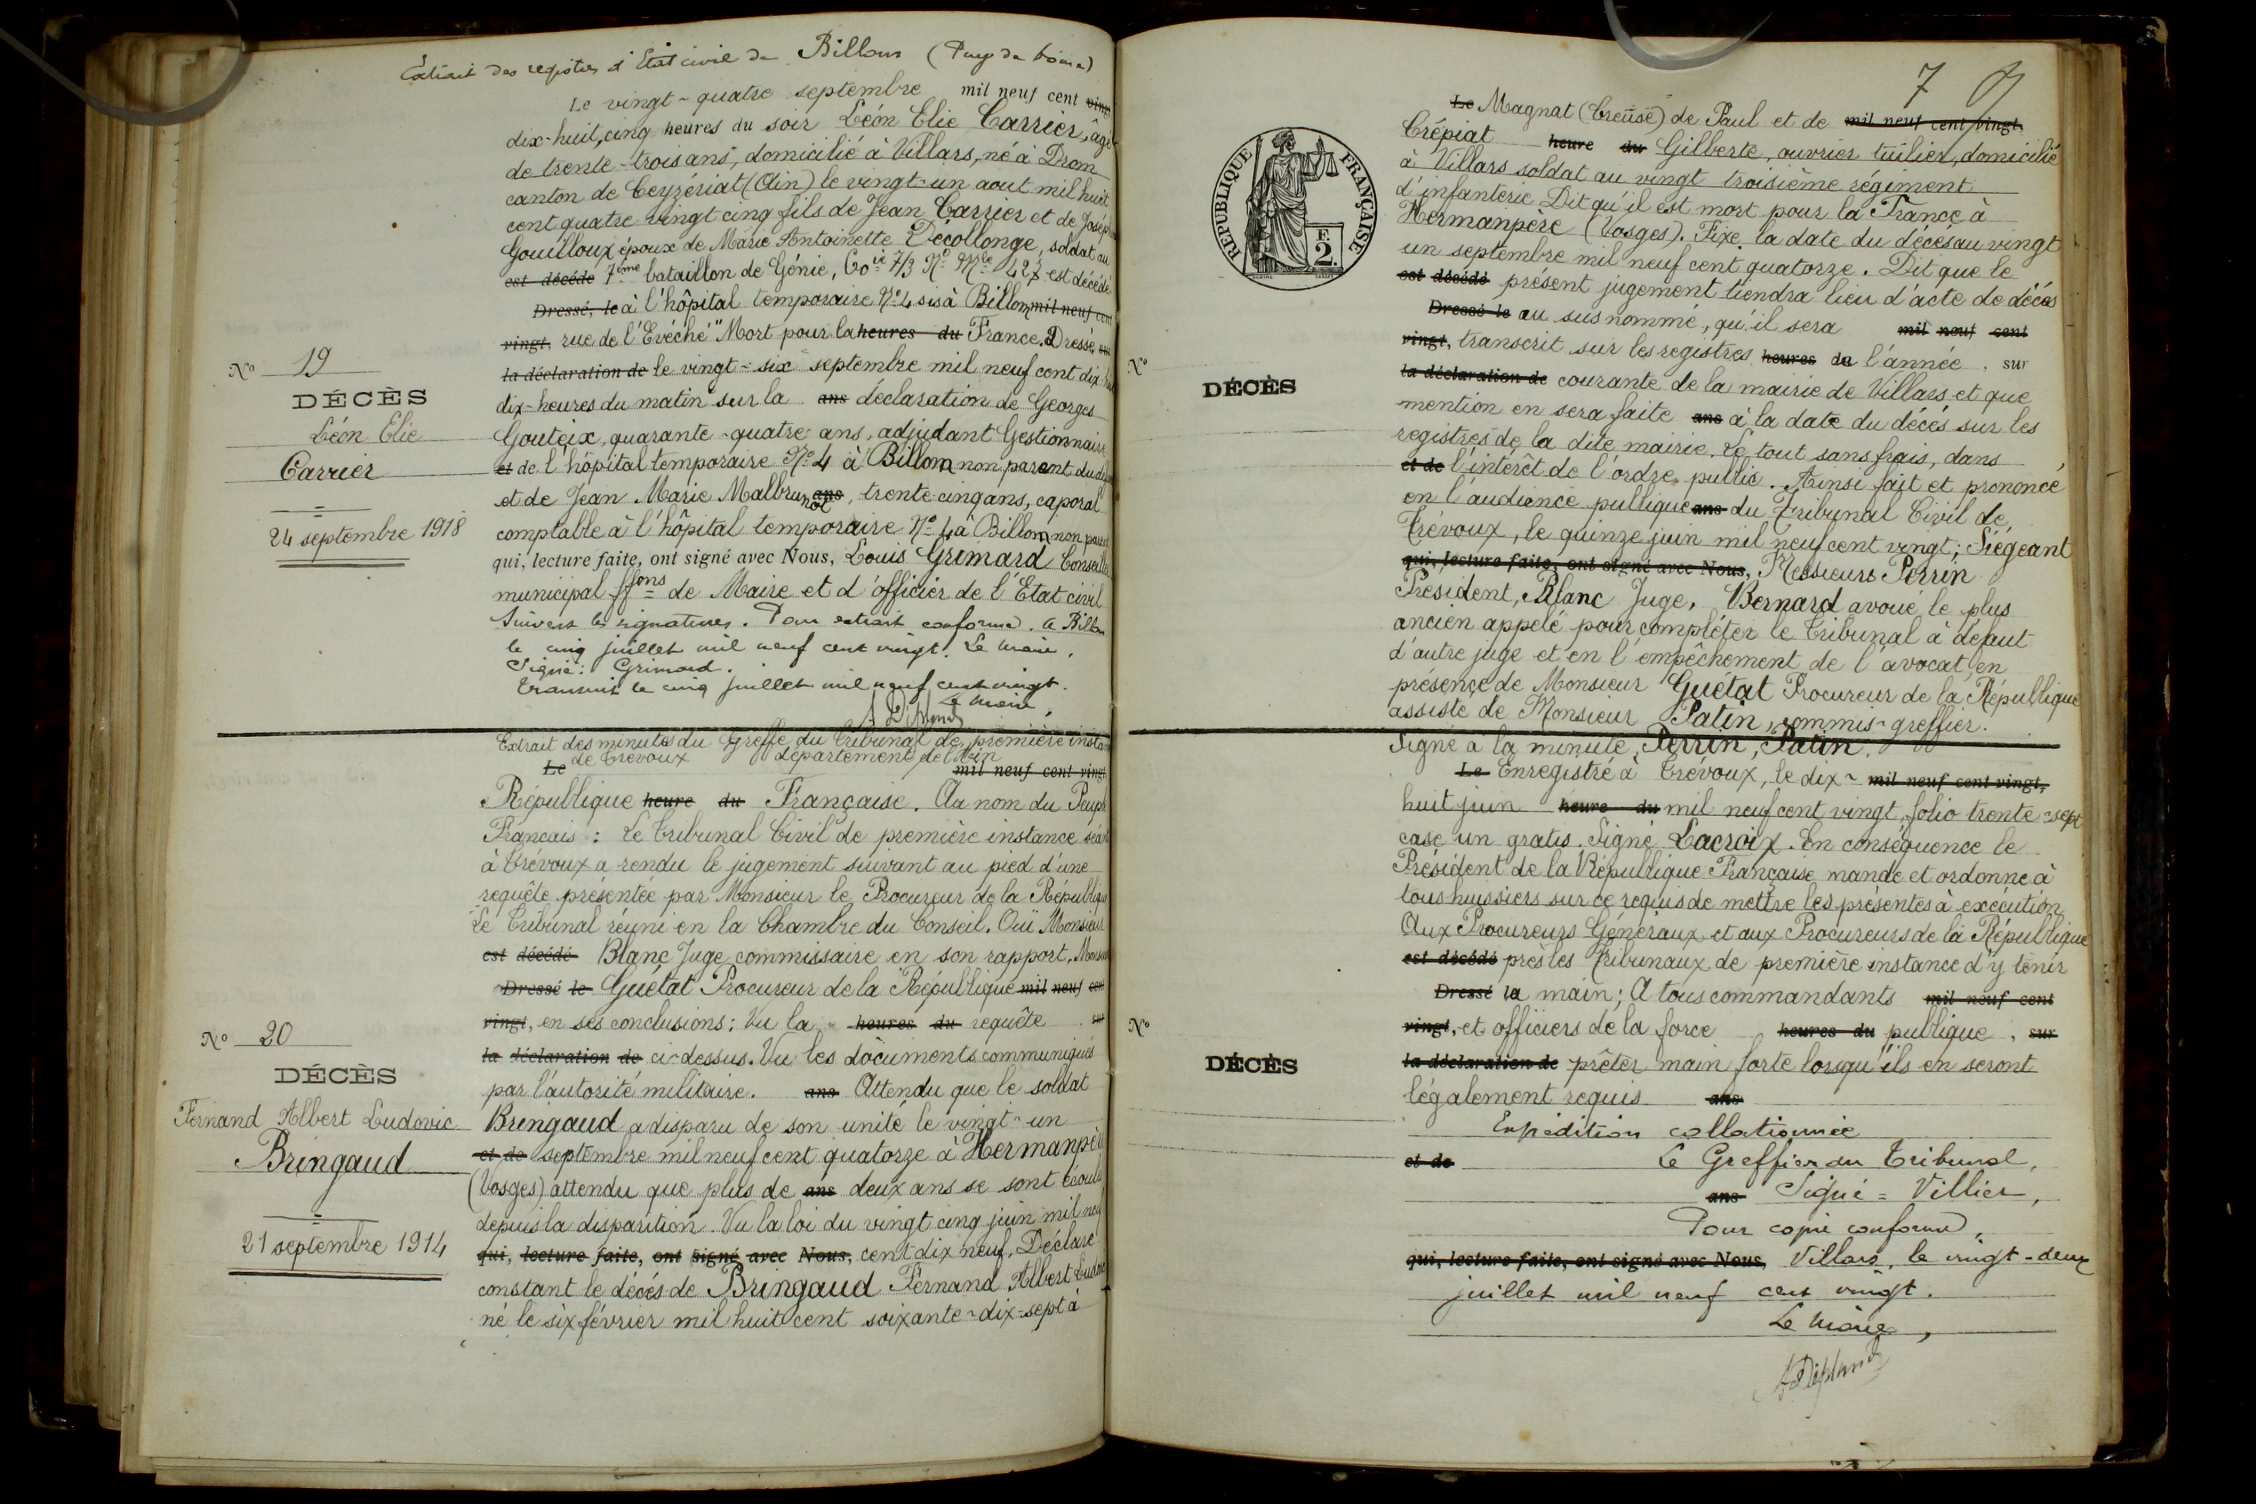 Extrait des registres d'Etat civil de Billom (Puy de Dôme)
Le vingt-quatre septembre mil neuf cent vingt
dix-huit, cinq heures du soir Léon Elie Carrier, âgé
de trente-trois ans, domicilié à Villars, né à Drom
canton de Ceyzériat (Ain) le vingt-un aout mil huit
cent quatre vingt cinq fils de Jean Carrier et de Joséph
Gouilloux époux de Marie Antoinette Décollonge, soldat au
est décédé 7ème bataillon de Génie, Cie 7/3 No Mle 427 est décédé
Dressé, le à l'hôpital temporaire No 4 sis à Billom mil neuf cent
vingt, rue de l'Evêché "Mort pour la heures du France. Dressé, sur
la déclaration de le vingt-six septembre mil neuf cent dix huit
No 19
DÉCÈS
Léon Elie
Carrier
24 septembre 1918
dix-heures du matin sur la ans déclaration de Georges
Gouteix, quarante-quatre ans, adjudant Gestionnaire
et de l'hôpital temporaire No 4 à Billom non parent du
et de Jean Marie Malbrunot ans, trente cinq ans, caporal
comptable à l'hôpital temporaire No 4 à Billom non parent
qui, lecture faite, ont signé avec Nous, Louis Grimard Conseiller
municipal ffons de Maire et d'officier de l'Etat civil
Suivent les signatures. Pour extrait conforme. A Billom
le cinq juillet mil neuf cent vingt. Le Maire,
Signé: Grimard.
Transcrit le cinq juillet mil neuf cent vingt.
Le Maire,
Extrait des minutes du Greffe du Tribunal de première insta
de Trévoux département de l'Ain
Le mil neuf cent vingt
République heure du Française. Au nom du Peuple
Français: Le Tribunal Civil de première instance séant
à Trévoux a rendu le jugement suivant au pied d'une
requête présentée par Monsieur le Procureur de la République
Le Tribunal réuni en la Chambre du Conseil. Ouï Monsieur
est décédé Blanc Juge commissaire en son rapport, Monsieur
Dressé le Guétat Procureur de la République mil neuf cent
vingt, en ses conclusions: Vu la heures du requête sur
la déclaration de ci-dessus. Vu les documents communiqués
par l'autorité militaire. ans Attendu que le soldat
No 20
DÉCÈS
Fernand Albert Ludovic
Bringaud
21 septembre 1914
Bringaud a disparu de son unité le vingt-un
et de septembre mil neuf cent quatorze à Hermanpère
(Vosges) attendu que plus de ans deux ans se sont écoulé
depuis la disparition. Vu la loi du vingt cinq juin mil neuf
qui, lecture faite, ont signé avec Nous, cent dix neuf, Déclare
constant le décés de Bringaud Fernand Albert Ludovic
né le six février mil huit cent soixante-dix-sept à
7
RÉPUBLIQUE FRANÇAISE
F.
2.
Le Magnat (Creuse) de Paul et de mil neuf cent vingt
Crépiat heure du Gilberte, ouvrier tuilier, domicilié
à Villars soldat au vingt troisième régiment
d'infanterie Dit qu'il est mort pour la France à
Hermanpère (Vosges). Fixe la date du décés au vingt
un septembre mil neuf cent quatorze. Dit que le
est décédé présent jugement tiendra lieu d'acte de décés
Dressé le au sus nommé, qu'il sera mil neuf cent
vingt, transcrit sur les registres heures de l'année, sur
la déclaration de courante de la mairie de Villars et que
No
DÉCÈS
mention en sera faite ans à la date du décés sur les
registres de la dite mairie. Le tout sans frais, dans
et de l'intérêt de l'ordre public. Ainsi fait et prononcé
en l'audience publique ans du Tribunal Civil de
Trévoux, le quinze juin mil neuf cent vingt; Siégeant
qui, lecture faite, ont signé avec Nous, Messieurs Perrin
Président, Blanc Juge, Bernard avoué le plus
ancien appelé pour compléter le Tribunal à défaut
d'autre juge et en l'empêchement de l'avocat, en
présence de Monsieur Guétat Procureur de la République
assisté de Monsieur Patin, commis-greffier.
Signé à la minute, Perrin, Patin.
Le Enregistré à Trévoux, le dix- mil neuf cent vingt,
huit juin heure du mil neuf cent vingt, folio trente-sept
case un gratis. Signé Lacroix. En conséquence le
Président de la République Française mande et ordonne à
tous huissiers sur ce requis de mettre les présentes à exécution
Aux Procureurs Généraux et aux Procureurs de la République
est décédé près les Tribunaux de première instance d'y tenir
Dressé la main; A tous commandants mil neuf cent
vingt, et officiers de la force heures du publique, sur
la déclaration de prêter main forte lorsqu'ils en seront
No
DÉCÈS
légalement requis ans
Expédition collationnée
et de Le Greffier du Tribunal,
ans Signé = Villier,
Pour copie conforme,
qui, lecture faite, ont signé avec Nous, Villars, le vingt-deux
juillet mil neuf cent vingt.
Le Maire,